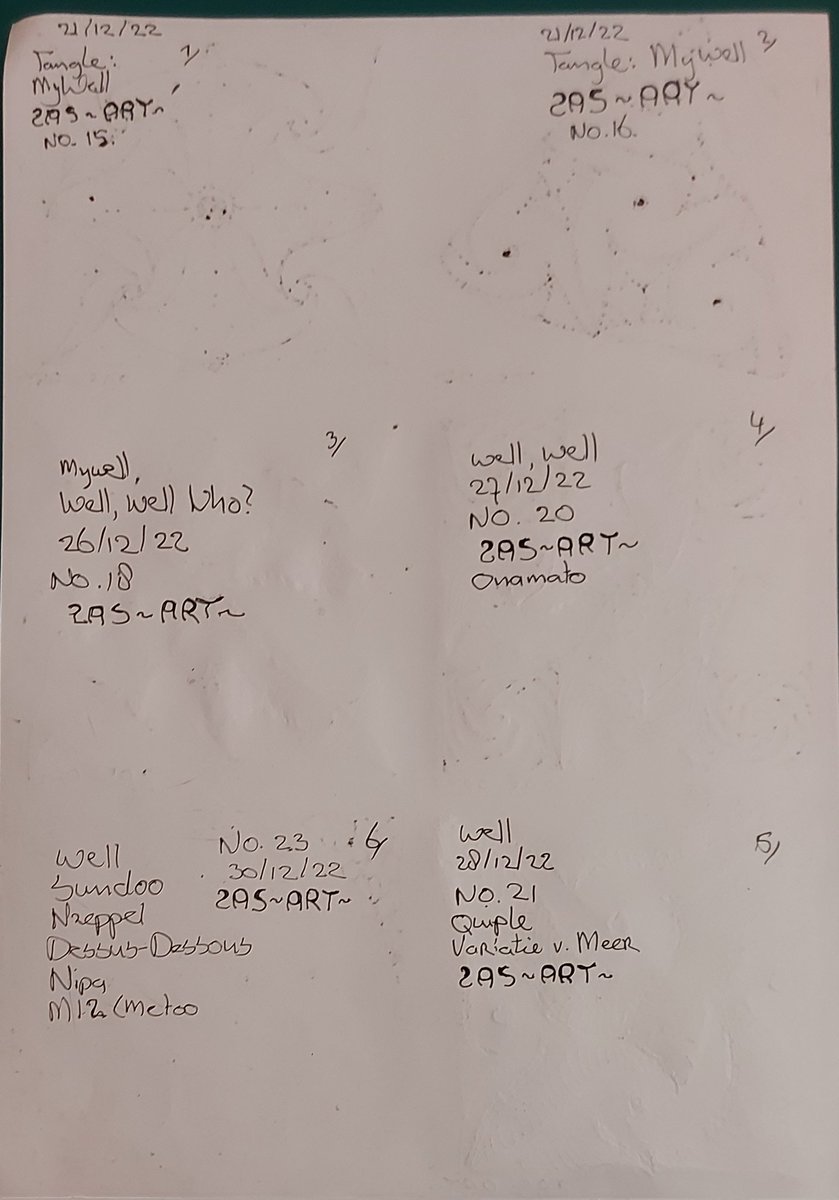 21/12/22
1/
Tangle:
MyWell
ZAS~ART~
NO. 15.
21/12/22
2/
Tangle: MyWell
ZAS~ART~
No.16.
3/
Mywell,
Well, well Who?
26/12/22
No.18
ZAS~ART~
4/
well, well
27/12/22
NO. 20
ZAS~ART~
Onamato
6/
Well
Sundoo
Nzeppel
Dessus-Dessous
Nipa
M12 (Metoo
No. 23
30/12/22
ZAS~ART~
5/
Well
28/12/22
NO. 21
Quiple
Variatie v. Meer
ZAS~ART~